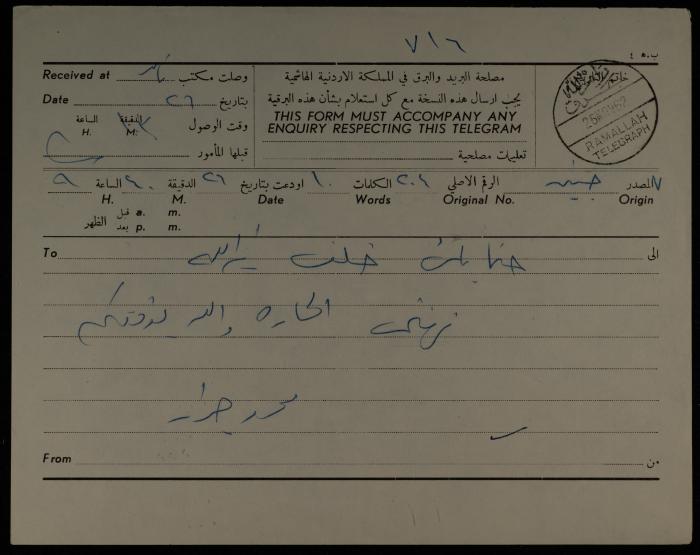 ٧١٦
ب.ه ٤
Received at وصلت مكتب
مصلحة البريد والبرق في المملكة الاردنية الهاشمية
Date ٢٦ بتاريخ
يجب ارسال هذه النسخة مع كل استعلام بشأن هذه البرقية
الساعة الدقيقة وقت الوصول
H. M. ١٣
THIS FORM MUST ACCOMPANY ANY
ENQUIRY RESPECTING THIS TELEGRAM
قبلها المأمور
تعليمات مصلحية
RAMALLAH
TELEGRAPH
المصدر جنين الرقم الاصلي ٢٠٤ الكلمات ١٠ اودعت بتاريخ ٢٦ الدقيقة ٤٠ الساعة ٩
Origin Original No. Words Date M. H.
الظهر قبل a. m.
بعد p. m.
To الى
حنا بك خلف رام الله
نهنئكم والله يوفقكم
محمد جرار
From من